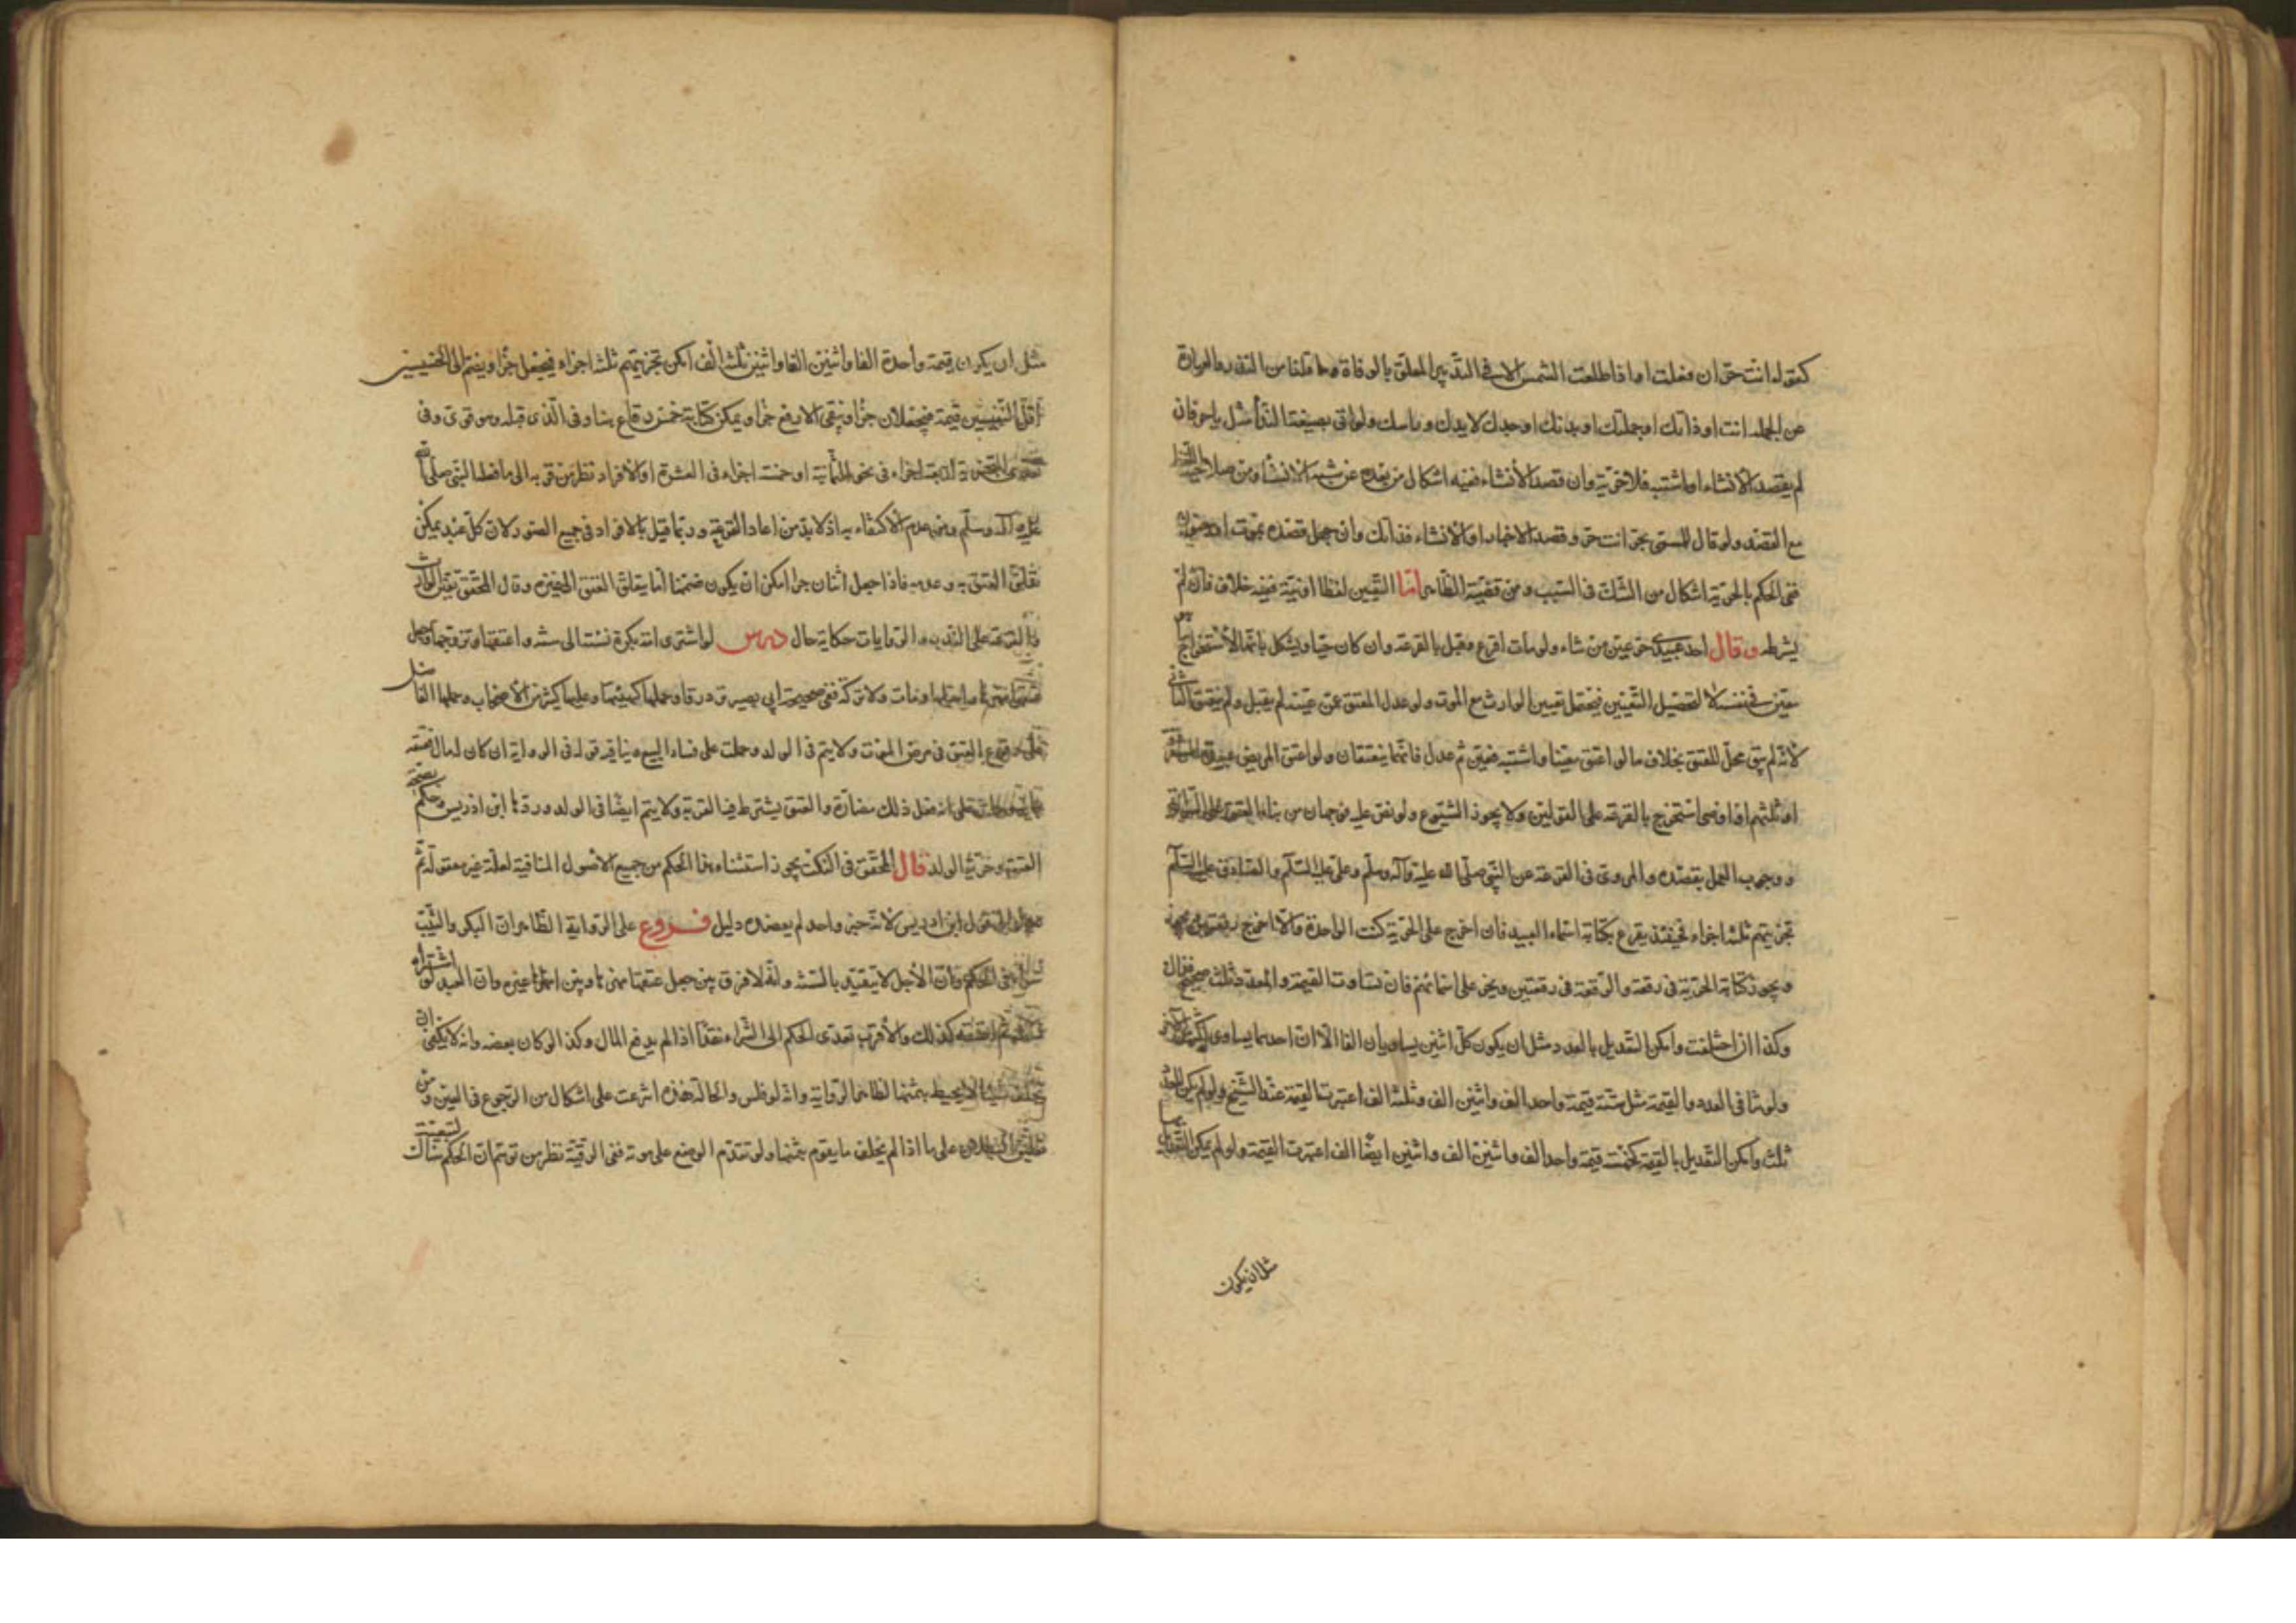 كقوله انت حر ان فعلت او اذا طلعت الشمس الا في التدبير المعلق بالوفاة وما قلنا من النذر والعبارة
عن الجملة انت او ذاتك او جملتك او بدنك او جسدك لا يدك وراسك ولو اتى بصيغة النداء مثل يا حر فان
لم يقصد الانشاء او اشتبه فلا حرية وان قصد الانشاء ففيه اشكال من بعده عن شبه الانشاء ومن صلاحية
مع القصد ولو قال للمسمى بحر انت حر وقصد الاخبار او الانشاء فذاك وان جهل قصده بموت او
ففي الحكم بالحرية اشكال من الشك في السبب ومن قضية الظاهر اما التعيين لفظا او نية ففيه خلاف فان لم
يشرطه وقال احد عبيدي حر عين من شاء ولو مات اقرع وقيل بالقرعة وان كان حيا ويشكل بانها لاستخراج ما هو
متعين في نفسه لا لتحصيل التعيين فيحتمل تعيين الوارث مع الموت ولو عدل المعتق عمن عينه لم يقبل ولم ينعتق الثاني
لانه لم يبق محل للعتق بخلاف ما لو اعتق معينا واشتبه فعين ثم عدل فانهما ينعتقان ولو اعتق المريض عبيده
او ثلثهم او اوصى استخرج بالقرعة على القولين ولا يجوز الشيوع ولو نص عليه فوجهان من بناء العتق على
ووجوب العمل بقصده والمروي في القرعة عن النبي صلى الله عليه وآله وسلم وعلي عليه السلم والصادق عليه السلم
تجزيتهم ثلثة اجزاء فحينئذ يقرع بكتابة اسماء العبيد فان اخرج على الحرية كفت الواحدة والا اخرج رقعتين
ويجوز كتابة الحرية في رقعة والرقية في رقعتين ويخرج على اسمائهم فان تساوت القيمة والعدد وثلث صحيح فذاك
وكذا ان اختلفت وامكن التعديل بالعدد مثل ان يكون كل اثنين يساويان الفا الا ان احدهما يساوي اكثر من الاخر
ولو تنافى العدد والقيمة مثل ستة قيمة واحد الف واثنين الف وثلثة الف اعتبرت القيمة عند الشيخ ولو لم يكن للعدد
ثلث وامكن التعديل بالقيمة كخمسة قيمة واحد الف واثنين الف واثنين ايضا الف اعتبرت القيمة ولو لم يمكن التعديل
مثل ان يكون
مثل ان يكون قيمة واحدة الفا واثنين الفا واثنين ثلثة الف امكن تجزيتهم ثلثة اجزاء فيجعل جزءا ويضم الى الخسيسين
اقل النفيسين قيمة فيجعلان جزءا ويبقى الارفع جزءا ويمكن كتابة خمس رقاع هنا وفي الذي قبله وهو قوي وفي
تعدي التجزية اربعة اجزاء في نحو الثمانية او خمسة اجزاء في العشرة او الافراد نظر من قربه الى ما فعله النبي صلى الله
عليه وآله وسلم ومن عدم الاكتفاء به اذ لا بد من اعادة القرعة وربما قيل بالافراد في جميع الصور لان كل عبد يمكن
تعلق العتق به وعدمه فاذا جعل اثنان جزءا امكن ان يكون ضمنا اليه ما يتعلق العتق الى غيره وقال المحقق بتعين الوارث
والقرعة على الندب والروايات حكاية حال درس لو اشترى امة بكرة نسئة الى سنة واعتقها وتزوجها وجعل
عتقها مهرها واحبلها ومات ولا تركة ففي صحيحة ابي بصير ترد رقا وحملها كهيئتها وعليها كثير من الاصحاب وحملها الفاضل
على وقوع العتق في مرض الموت ولا يتم في الولد وحملت على فساد البيع وينافيه قوله في الرواية ان كان له مال فعتقه
على انه فعل ذلك مضارة والعتق يشترط فيه القربة ولا يتم ايضا في الولد وردها ابن ادريس وحكم بصحة
العتق وحرية الولد قال المحقق في النكت يجوز استثناء هذا الحكم من جميع الاصول المنافية لعلة غير معقولة ثم
قول ابن ادريس لانه خبر واحد لم يعضده دليل فروع على الرواية الظاهر ان البكر والثيب
في الحكم وان الاجل لا يتقيد بالسنة وانه لا فرق بين جعل عتقها مهرها وبين امهارها غيره وان العبد لو اشتراه
ثم اعتقه كذلك والاقرب تعدي الحكم الى الشراء نقدا اذا لم يدفع المال وكذا لو كان بعضه وانه لا يكفي ان
يخلف شيئا لا يحيط بثمنها لظاهر الرواية وانه لو فلس والحالة هذه انترعت على اشكال من الرجوع في العين ومن
على ما اذا لم يخلف ما يقوم بثمنها ولو تقدم الوضع على موته ففي الرقية نظر من توهم ان الحكم بذاك لتبعيته